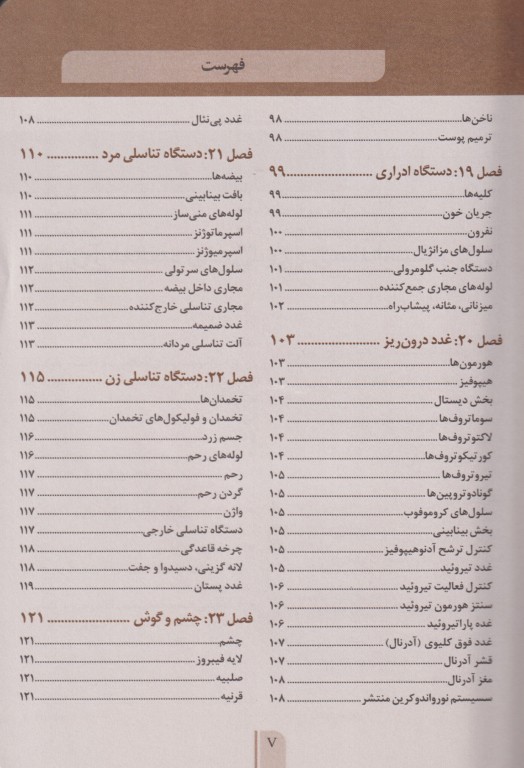 فهرست
ناخن‌ها ۹۸
ترمیم پوست ۹۸
فصل ۱۹: دستگاه ادراری ۹۹
کلیه‌ها ۹۹
جریان خون ۹۹
نفرون ۱۰۰
سلول‌های مزانژیال ۱۰۰
دستگاه جنب گلومرولی ۱۰۱
لوله‌های مجاری جمع‌کننده ۱۰۱
میزنانی، مثانه، پیشاب‌راه ۱۰۲
فصل ۲۰: غدد درون‌ریز ۱۰۳
هورمون‌ها ۱۰۳
هیپوفیز ۱۰۳
بخش دیستال ۱۰۴
سوماتروف‌ها ۱۰۴
لاکتوتروف‌ها ۱۰۴
کورتیکوتروف‌ها ۱۰۴
تیروتروف‌ها ۱۰۵
گونادوتروپین‌ها ۱۰۵
سلول‌های کروموفوب ۱۰۵
بخش بینابینی ۱۰۵
کنترل ترشح آدنوهیپوفیز ۱۰۵
غدد تیروئید ۱۰۵
کنترل فعالیت تیروئید ۱۰۶
سنتز هورمون تیروئید ۱۰۶
غده پاراتیروئید ۱۰۶
غدد فوق کلیوی (آدرنال) ۱۰۷
قشر آدرنال ۱۰۷
مغز آدرنال ۱۰۸
سیستم نورواندوکرین منتشر ۱۰۸
غدد پی‌نئال ۱۰۸
فصل ۲۱: دستگاه تناسلی مرد ۱۱۰
بیضه‌ها ۱۱۰
بافت بینابینی ۱۱۰
لوله‌های منی‌ساز ۱۱۱
اسپرماتوژنز ۱۱۱
اسپرمیوژنز ۱۱۱
سلول‌های سرتولی ۱۱۲
مجاری داخل بیضه ۱۱۲
مجاری تناسلی خارج‌کننده ۱۱۲
غدد ضمیمه ۱۱۳
آلت تناسلی مردانه ۱۱۳
فصل ۲۲: دستگاه تناسلی زن ۱۱۵
تخمدان‌ها ۱۱۵
تخمدان و فولیکول‌های تخمدان ۱۱۵
جسم زرد ۱۱۶
لوله‌های رحم ۱۱۶
رحم ۱۱۷
گردن رحم ۱۱۷
واژن ۱۱۷
دستگاه تناسلی خارجی ۱۱۷
چرخه قاعدگی ۱۱۸
لانه گزینی، دسیدوا و جفت ۱۱۸
غدد پستان ۱۱۹
فصل ۲۳: چشم و گوش ۱۲۱
چشم ۱۲۱
لایه فیبروز ۱۲۱
صلبیه ۱۲۱
قرنیه ۱۲۱
۷